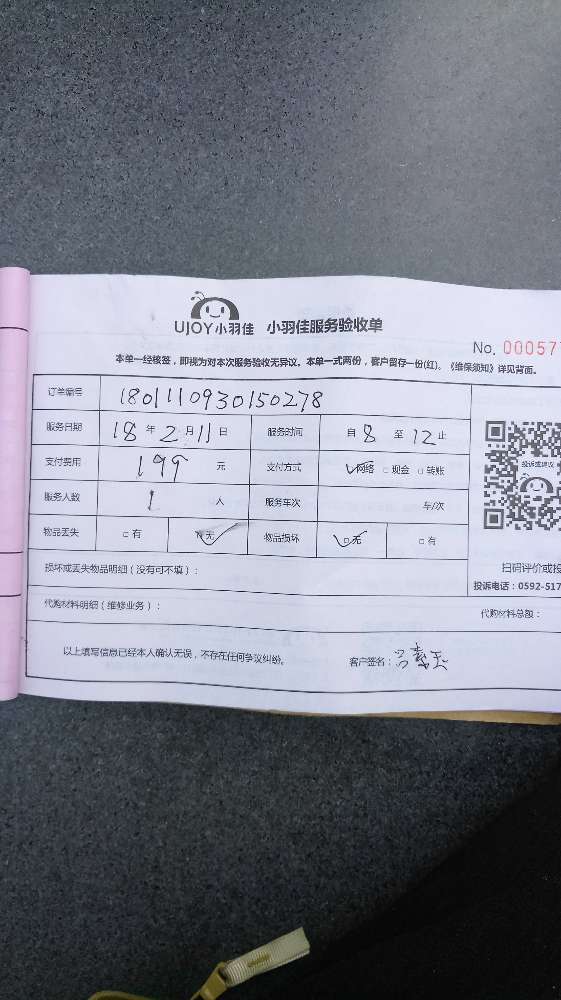 UJOY小羽佳 小羽佳服务验收单
No. 000577
本单一经核签，即视为对本次服务验收无异议。本单一式两份，客户留存一份(红)。《维保须知》详见背面。
订单编号 1801110930150278
服务日期 18 年 2 月 11 日 服务时间 自 8 至 12 止
支付费用 199 元 支付方式 ☑网络 □现金 □转账
服务人数 1 人 服务车次 车/次
物品丢失 □有 ☑无 物品损坏 ☑无 □有
投诉或建议
损坏或丢失物品明细（没有可不填）：
扫码评价或投
投诉电话：0592-517
代购材料明细（维修业务）： 代购材料总额：
以上填写信息已经本人确认无误，不存在任何争议纠纷。 客户签名：